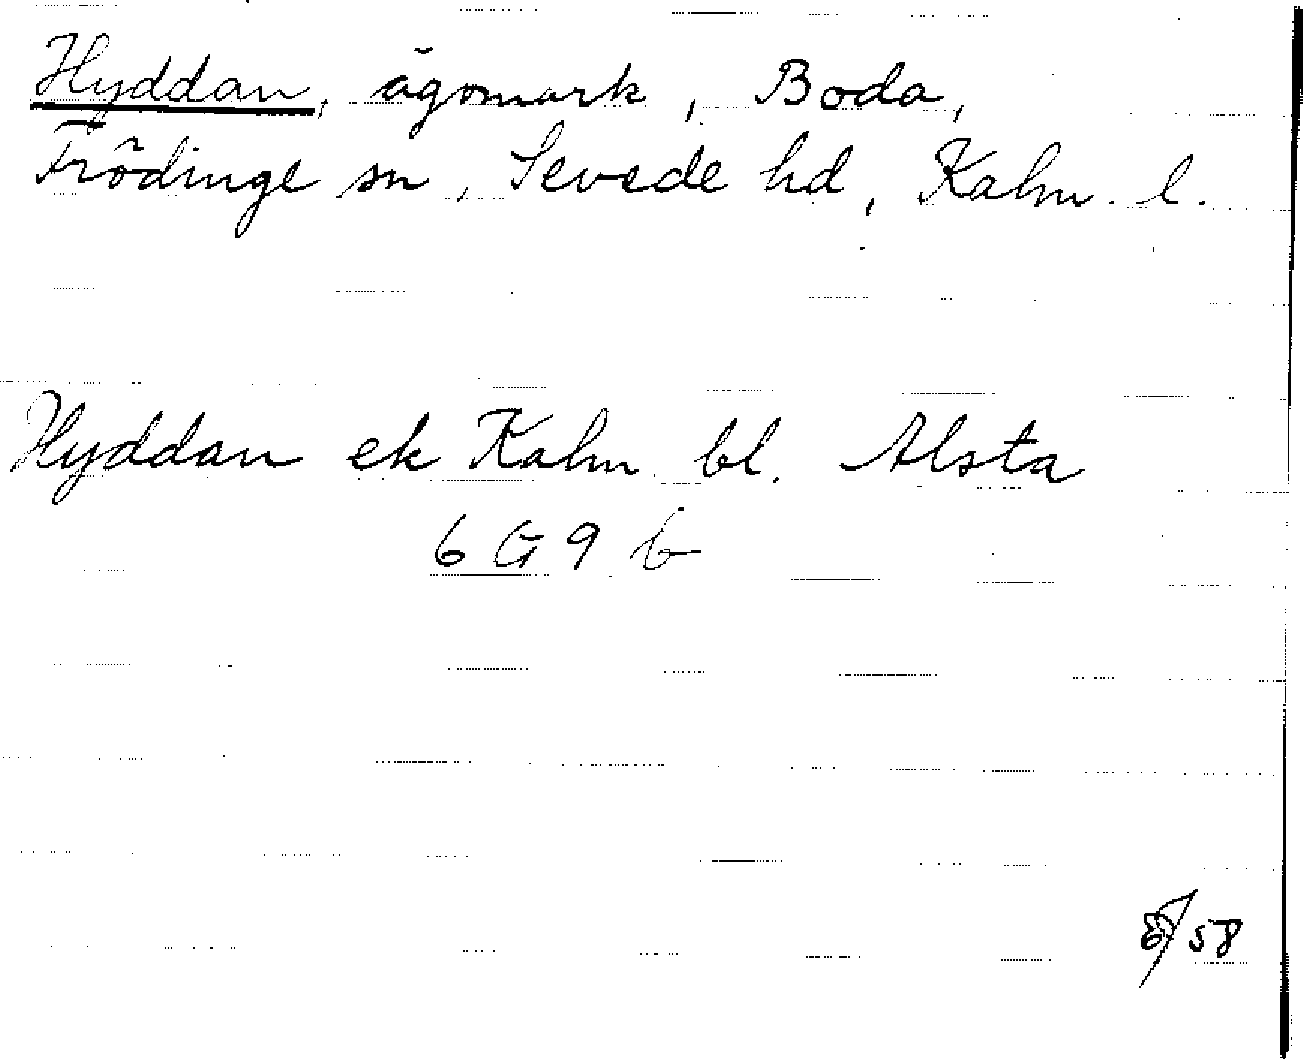 Hyddan, ägomark, Boda,
Frödinge sn, Sevede hd, Kalm. l.
Hyddan ek Kalm bl. Alsta
6 G 9 b
58